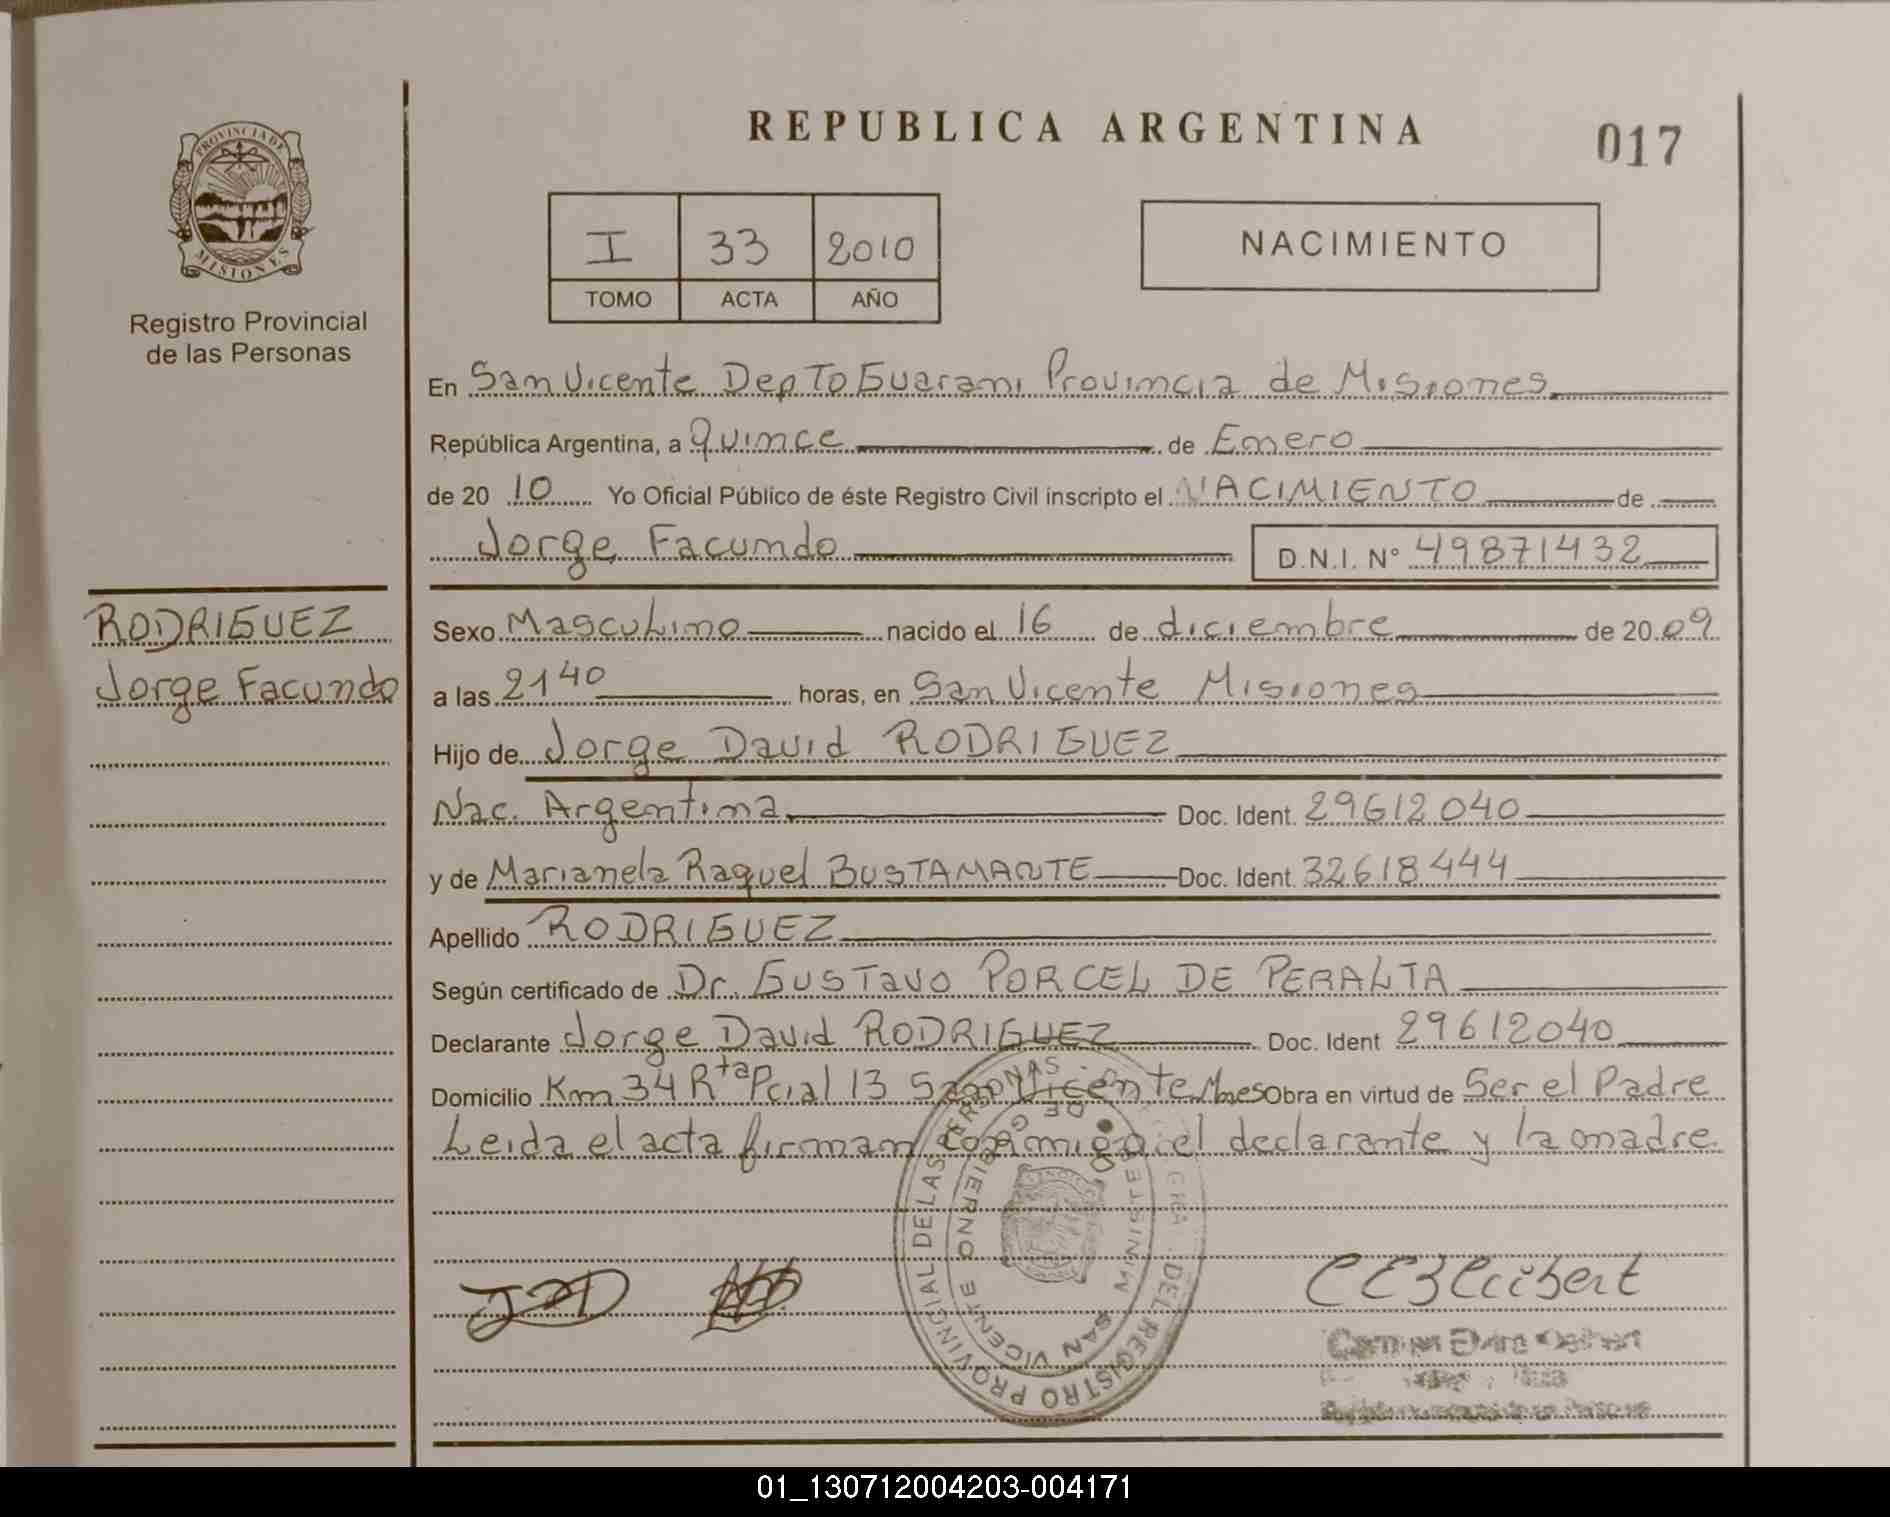 REPUBLICA ARGENTINA
017
PROVINCIA DE MISIONES
Registro Provincial
de las Personas
I 33 2010
TOMO ACTA AÑO
NACIMIENTO
En San Vicente Depto Guarani Provincia de Misiones
República Argentina, a Quince de Enero
de 20 10 Yo Oficial Público de éste Registro Civil inscripto el NACIMIENTO de
Jorge Facundo D.N.I. N° 49871432
RODRIGUEZ
Jorge Facundo
Sexo Masculino nacido el 16 de diciembre de 20 09
a las 21 40 horas, en San Vicente Misiones
Hijo de Jorge David RODRIGUEZ
Nac. Argentina Doc. Ident. 29612040
y de Marianela Raquel BUSTAMANTE Doc. Ident. 32618444
Apellido RODRIGUEZ
Según certificado de Dr. GUSTAVO PORCEL DE PERALTA
Declarante Jorge David RODRIGUEZ Doc. Ident 29612040
Domicilio Km 34 Rta Pcial 13 San Vicente Mnes Obra en virtud de Ser el Padre
Leida el acta firman conmigo el declarante y la madre
REGISTRO PROVINCIAL DE LAS PERSONAS
SAN VICENTE
DE GOBIERNO
01_130712004203-004171